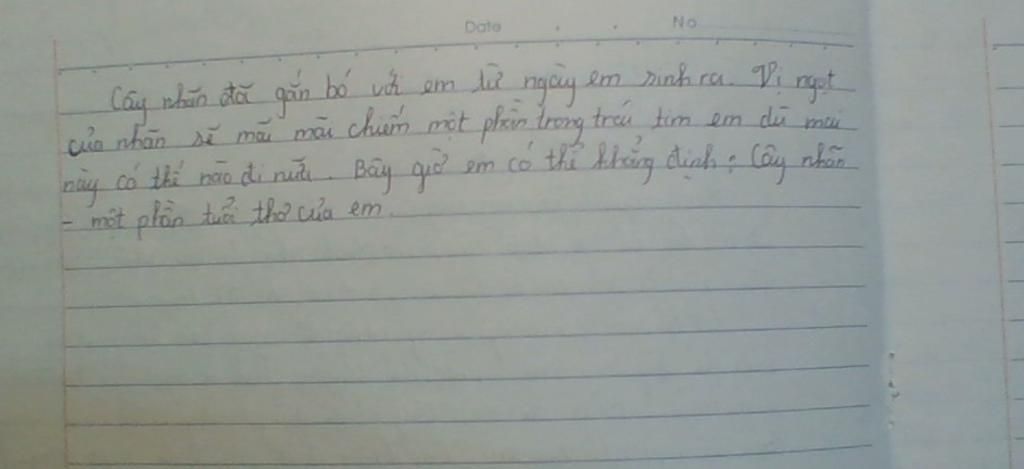 Date . . No
Cây nhãn đã gắn bó với em từ ngày em sinh ra. Vị ngọt
của nhãn sẽ mãi mãi chiếm một phần trong trái tim em dù mai
này có thế nào đi nữa. Bây giờ em có thể khẳng định: Cây nhãn
- một phần tuổi thơ của em.